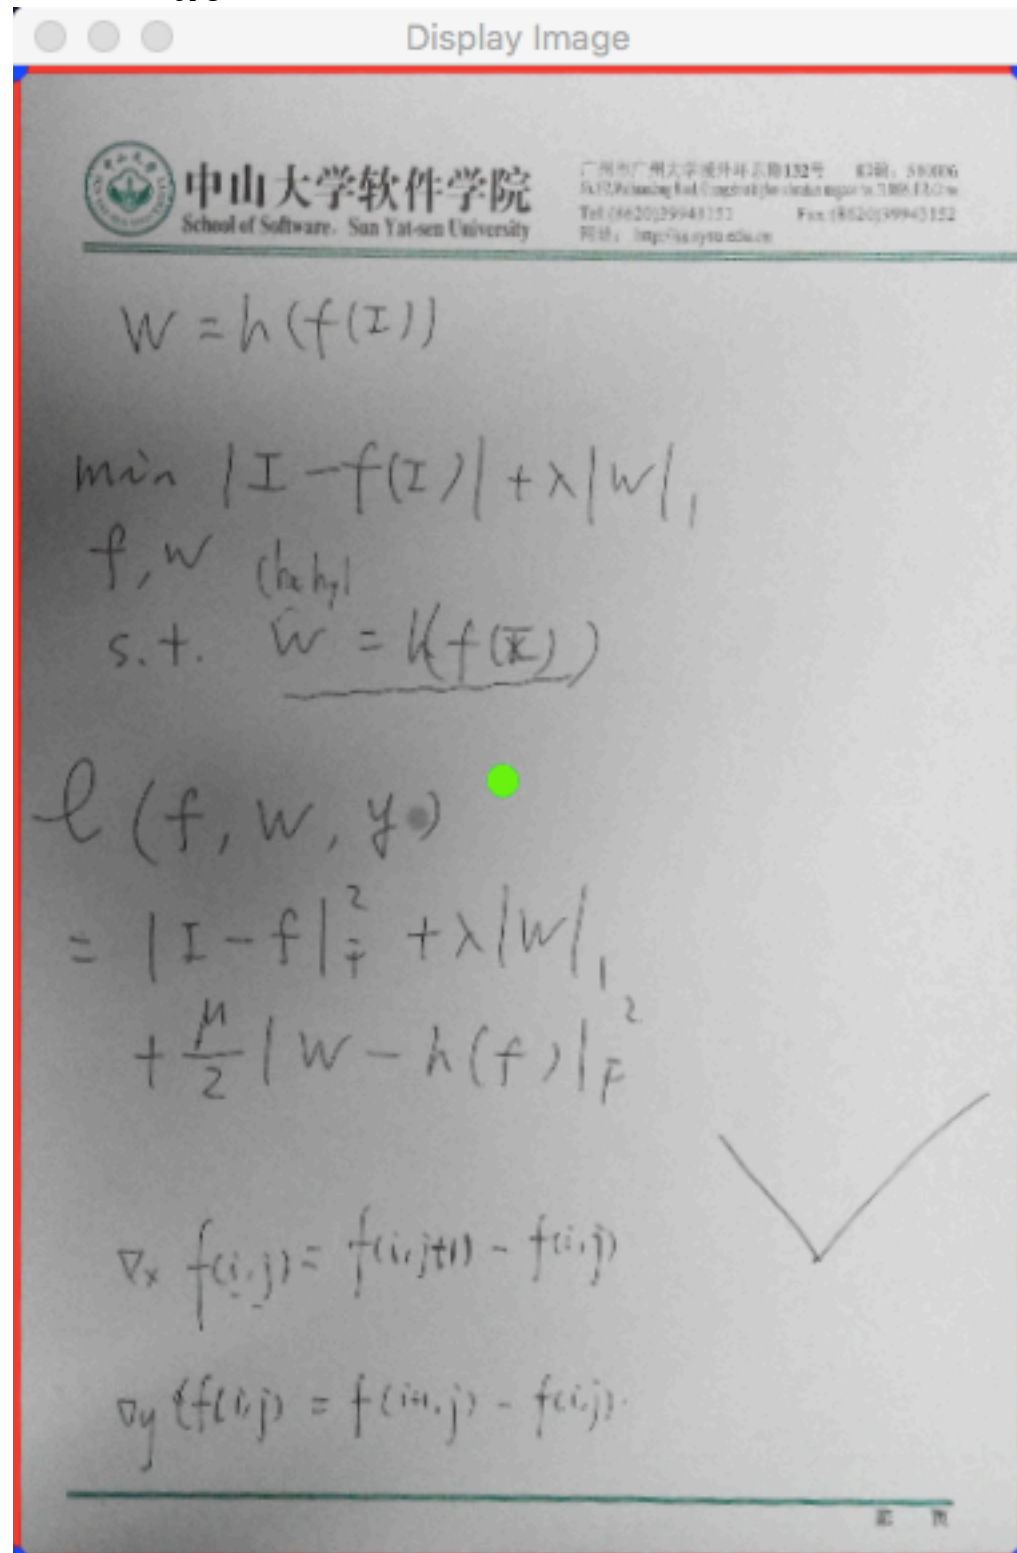 Display Image
中山大学软件学院
School of Software, Sun Yat-sen University
132号
Tel:(8620)39943152
Fax:(8620)39943152
W = h(f(I))
min |I - f(I)| + λ|W|₁
f, w (hx hy)
s.t. W = h(f(I))
ℓ(f, W, y)
= |I - f|²_F + λ|W|₁
+ μ/2 |W - h(f)|_F²
∇x f(i,j) = f(i,j+1) - f(i,j)
∇y f(i,j) = f(i+1,j) - f(i,j).
第 页